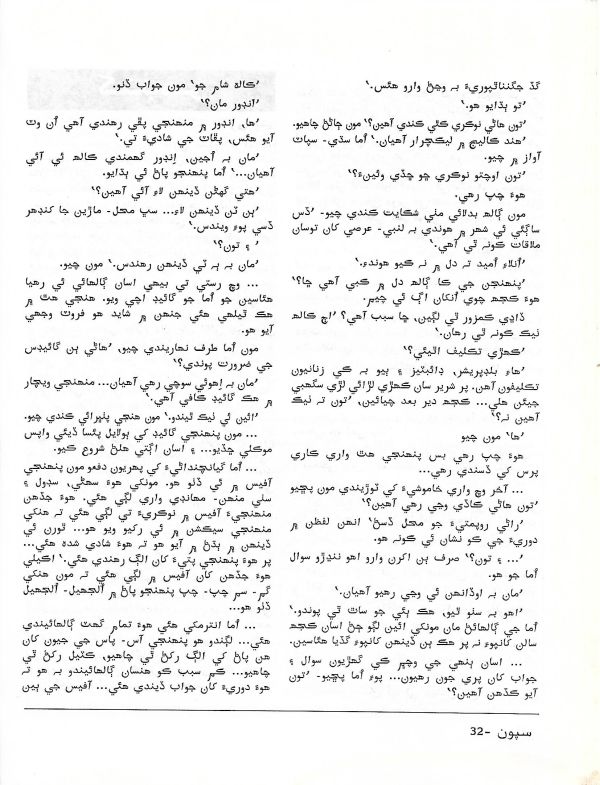 گڏ جگنناٿپوريءَ بہ وڃڻ وارو هئس.‘
’تو ٻڌايو هو.‘
’تون هاڻي نوڪري ڪٿي ڪندي آهين؟‘ مون ڄاڻڻ چاهيو.
’هند ڪاليج ۾ ليڪچرار آهيان.‘ اُما سڌي- سپاٽ
آواز ۾ چيو.
’تون اوچتو نوڪري ڇو ڇڏي وئينءَ؟‘
هوءَ چپ رهي.
مون ڳالھ بدلائي مٺي شڪايت ڪندي چيو- ’ڏس
ساڳئي ئي شهر ۾ هوندي بہ لنبي- عرصي کان توسان
ملاقات ڪونہ ٿي آهي.‘
’اُنلاءِ اُميد تہ دل ۾ نہ ڪيو هوندءِ.‘
’پنهنجن جي ڪا ڳالھ دل ۾ ڪبي آهي ڇا؟‘
هوءَ ڪجھ چوي اُنکان اڳ ئي چيم-
’ڏاڍي ڪمزور ٿي لڳين، ڇا سبب آهي؟‘ ’اڄ ڪالھ
ٺيڪ ڪونہ ٿي رهان.‘
’ڪهڙي تڪليف اٿيئي؟‘
’هاءِ بلڊپريشر، ڊائبٽيز ۽ ٻيو بہ ڪي زنانيون
تڪليفون آهن. پر شرير سان ڪهڙي لڙائي لڙي سگھبي
جيئن هلي... ڪجھ دير بعد چيائين، ’تون تہ ٺيڪ
آهين نہ؟‘
’ها‘ مون چيو
هوءَ چپ رهي بس پنهنجي هٿ واري ڪاري
پرس کي ڏسندي رهي...
... آخر وچ واري خاموشيءَ کي ٽوڙيندي مون پڇيو
’تون هاڻي ڪاڏي وڃي رهي آهين؟‘
’راڻي روپمتيءَ جو محل ڏسڻ‘ انهن لفظن ۾
دوريءَ جي ڪو نشان ئي ڪونہ هو.
’... ۽ تون؟‘ صرف ٻن اکرن وارو اهو ننڍڙو سوال
اُما جو هو.
’مان بہ اوڏانهن ئي وڃي رهيو آهيان.‘
’اهو بہ سٺو ٿيو، هڪ ٻئي جو ساٿ ٿي پوندو.‘
اُما جي ڳالهائڻ مان مونکي ائين لڳو ڄڻ اسان ڪجھ
سالن کانپوءِ نہ پر هڪ ٻن ڏينهن کانپوءِ گڏيا هئاسين.
... اسان ٻنهي جي وچ۾ ڪي گھڙيون سوال ۽
جواب کان پري جون رهيون... پوءِ اُما پڇيو- ’تون
آيو ڪڏهن آهين؟‘
’ڪالھ شام جو‘ مون جواب ڏنو.
’اندور مان؟‘
’ها، اندور ۾ منهنجي پڦي رهندي آهي اُن وٽ
آيو هئس، پڦاٽ جي شاديءَ تي.‘
’مان بہ اُجين، اِندور گھمندي ڪالھ ئي آئي
آهيان...‘ اُما پنهنجو پاڻ ئي ٻڌايو.
’هتي گھڻن ڏينهن لاءِ آئي آهين؟‘
’ٻن ٽن ڏينهن لاءِ... سڀ محل- ماڙين جا کنڊهر
ڏسي پوءِ ويندس.‘
’ ۽ تون؟‘
’مان بہ ٻہ ٽي ڏينهن رهندس.‘ مون چيو.
... وچ رستي تي بيهي اسان ڳالهائي ئي رهيا
هئاسين جو اُما جو گائيڊ اچي ويو. هنجي هٿ ۾
هڪ ٿيلهي هئي جنهن ۾ شايد هو فروٽ وجھي
آيو هو.
مون اُما طرف نهاريندي چيو، ’هاڻي ٻن گائيڊس
جي ضرورت پوندي؟‘
’مان بہ اِهوئي سوچي رهي آهيان... منهنجي ويچار
۾ هڪ گائيڊ ڪافي آهي.‘
’ائين ئي ٺيڪ ٿيندو.‘ مون هنجي پٺڀرائي ڪندي چيو.
... مون پنهنجي گائيڊ کي ٻولايل پئسا ڏيئي واپس
موڪلي ڇڏيو... ۽ اسان اڳتي هلڻ شروع ڪيو.
... اُما گيانچنداڻيءَ کي پهريون دفعو مون پنهنجي
آفيس ۾ ئي ڏٺو هو. مونکي هوءَ سهڻي، سڊول ۽
سٺي منهن- مهانڊي واري لڳي هئي. هوءَ جڏهن
منهنجيءَ آفيس ۾ نوڪريءَ تي لڳي هئي تہ هنکي
منهنجي سيڪشن ۾ ئي رکيو ويو هو... ٿورن ئي
ڏينهن ۾ ٻڌڻ ۾ آيو هو تہ هوءَ شادي شده هئي...
پر هوءَ پنهنجي پتيءَ کان الڳ رهندي هئي.‘ اڪيلي
هوءَ جڏهن کان آفيس ۾ لڳي هئي تہ مون هنکي
گم- سم چپ- چپ پنهنجو پاڻ ۾ اُلجھيل- اُلجھيل
ڏٺو هو...
... اُما انترمکي هئي هوءَ تمام گھٽ ڳالهائيندي
هئي... لڳندو هو پنهنجي آس- پاس جي جيون کان
هن پاڻ کي الڳ رکڻ ٿي چاهيو، ڪٽيل رکڻ ٿي
چاهيو... ڪم سبب ڪو هنسان ڳالهائيندو بہ هو تہ
هوءَ دوريءَ کان جواب ڏيندي هئي... آفيس جي ٻين
سپون -32